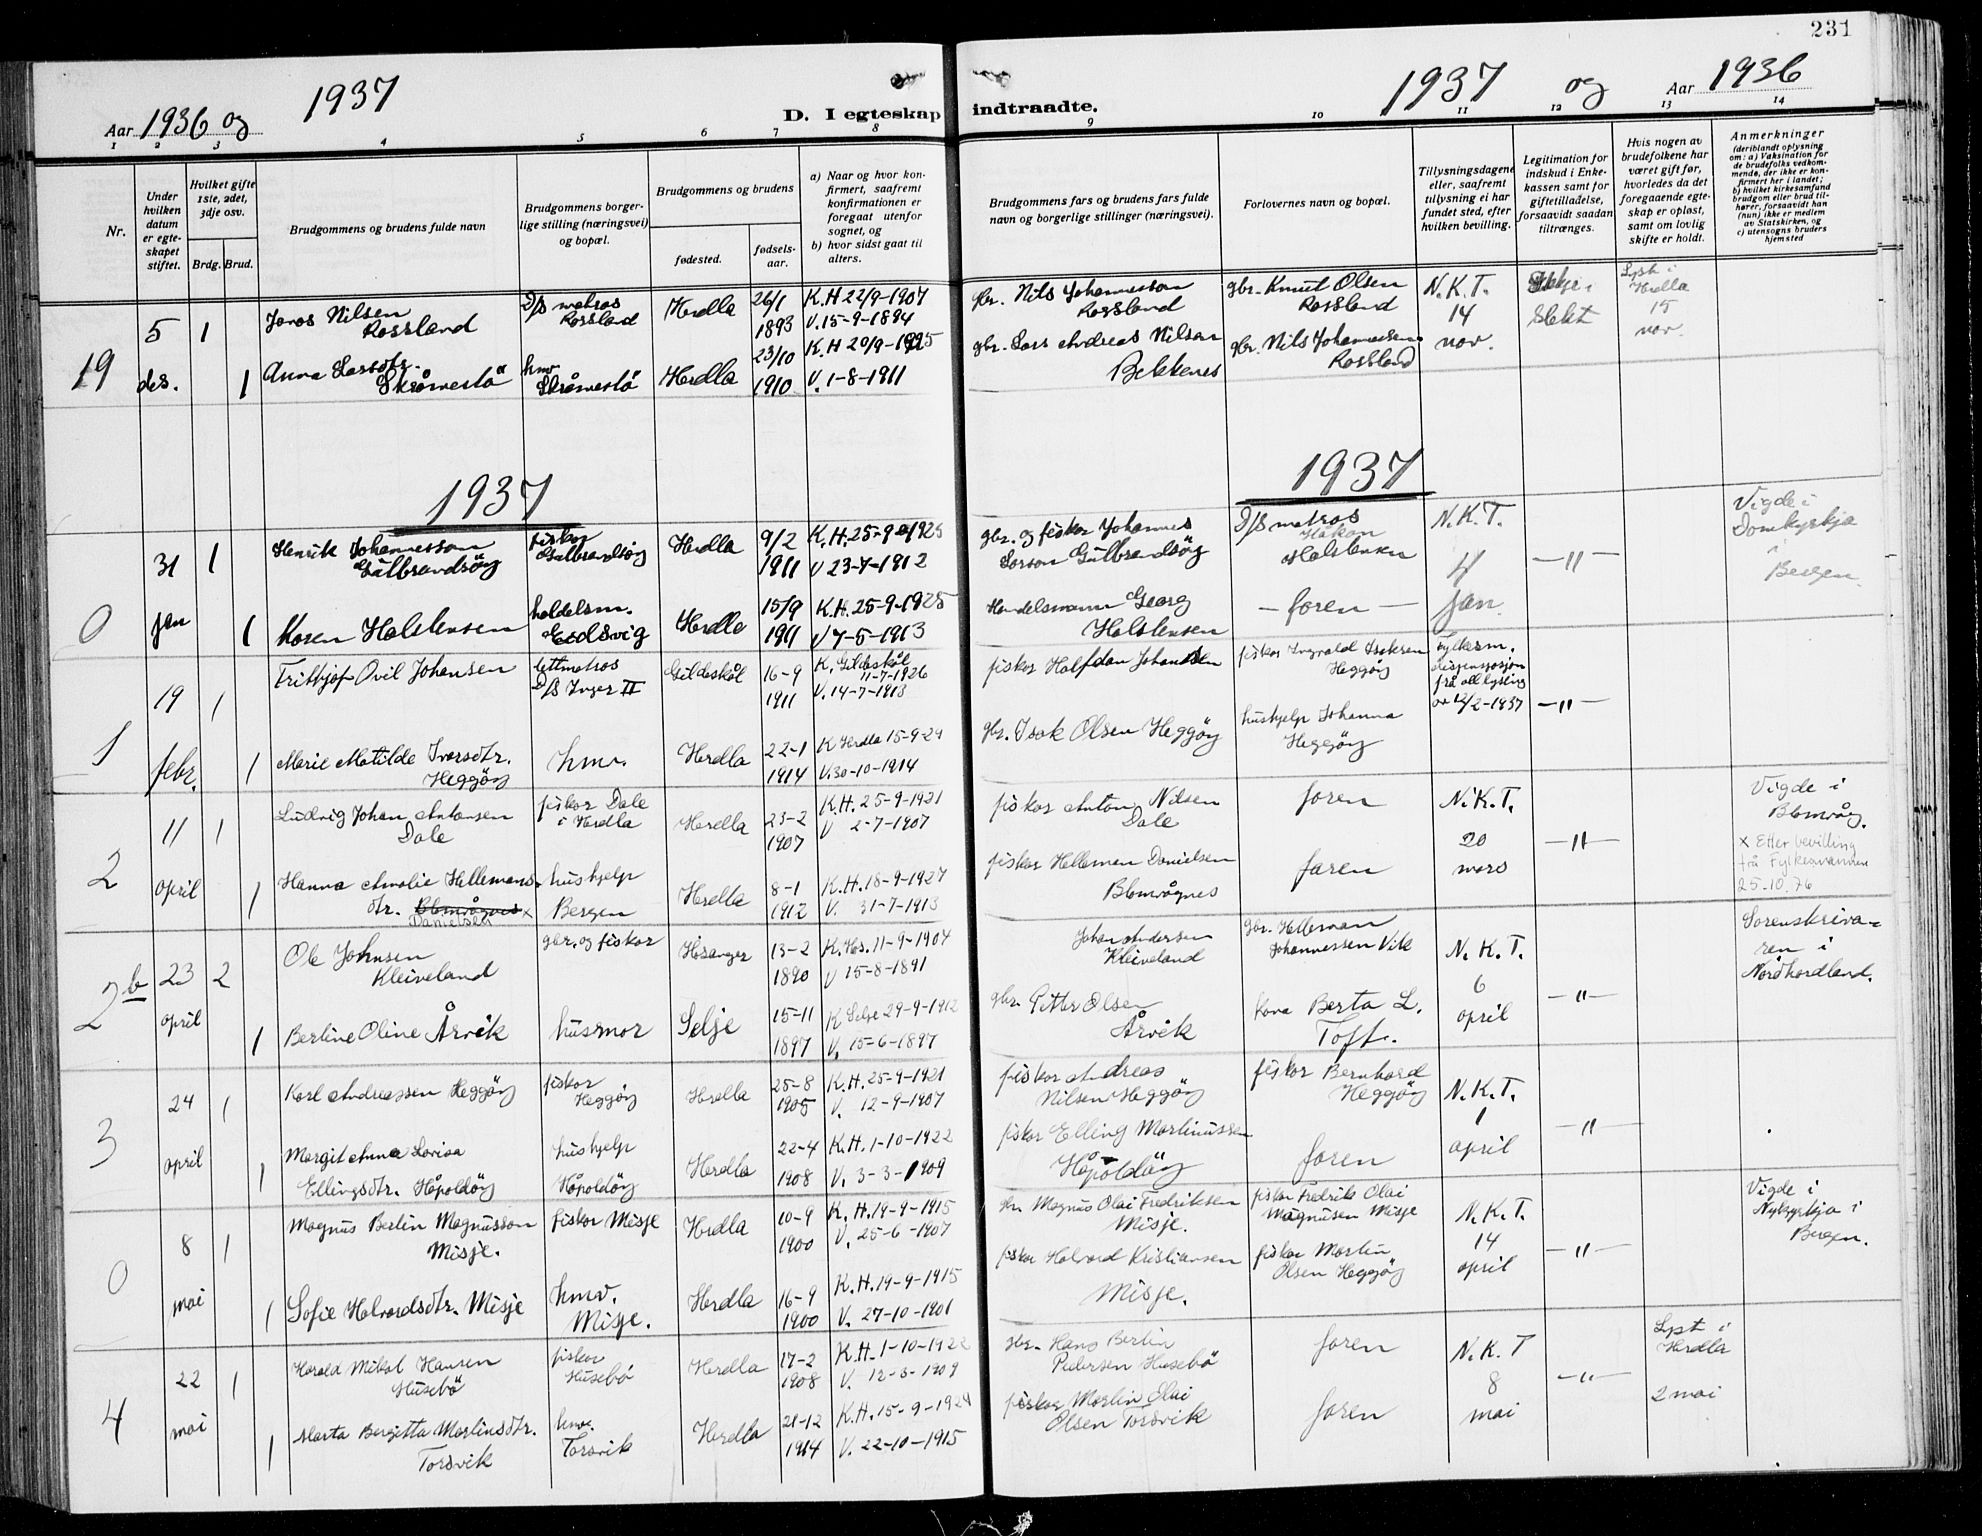 231
Aar 1936 og 1937
D. I egteskap indtraadte.
1937 og Aar 1936
1 2 3 4 5 6 7 8 9 10 11 12 13 14
Nr.
Under hvilken datum er egteskapet stiftet.
Hvilket gifte 1ste, 2det, 3dje osv.
Brdg. Brud.
Brudgommens og brudens fulde navn
Brudgommens borgerlige stilling (næringsvei) og bopæl.
Brudgommens og brudens
fødested.
fødselsaar.
a) Naar og hvor konfirmert, saafremt konfirmationen er foregaat utenfor sognet, og
b) hvor sidst gaat til alters.
Brudgommens fars og brudens fars fulde navn og borgerlige stillinger (næringsvei).
Forlovernes navn og bopæl.
Tillysningsdagene eller, saafremt tillysning ei har fundet sted, efter hvilken bevilling.
Legitimation for indskud i Enkekassen samt for giftetilladelse, forsaavidt saadan tiltrænges.
Hvis nogen av brudefolkene har været gift før, hvorledes da det foregaaende egteskap er opløst, samt om lovlig skifte er holdt.
Anmerkninger (deriblandt oplysning om: a) Vaksination for de brudefolks vedkommende, der ikke er konfirmert her i landet; b) hvilket kirkesamfund brudgom eller brud tilhører, forsaavidt han (hun) ikke er medlem av Statskirken, og c) utensogns bruders hjemsted
19 5 des. 1 Jonas Nilsen Rossland D/S matros Rossland Herdla 26/1 1893 K.H 22/9-1907 V. 15-9-1894 gbr. Nils Johannesson Rossland gbr. Knut Olsen Rossland N.K.T. 14 nov. Ikkje i slekt Lyst i Herdla 15 nov.
1 Anna Larsdtr. Skråmestö hmv Skråmestö Herdla 23/10 1910 K.H 20/9-1925 V. 1-8-1911 gbr. Lars Andreas Nilsen Bekkenes gbr. Nils Johannessen Rossland
1937
1937
0 31 jan 1 Henrik Johannesson Gulbrandsöy fiskar Gulbrandsöy Herdla 9/2 1911 K.H. 25-9-1925 V 23-7-1912 gbr. og fiskar Johannes Larson Gulbrandsöy D/S matros Håkon Halstensen N.K.T. 4 jan. —"— Vigde i Domkyrkja i Bergen.
1 Karen Halstensen handelsm. Eidsvig Herdla 15/9 1911 K.H. 25-9-1925 V 7-5-1913 Handelsmann Georg Halstensen — faren —
1 19 febr. 1 Fritbjof Ovil Johansen lettmatros D/S Inger II Gildeskål 16-9 1911 K. Gildeskål 11-7-1926 V. 14-7-1913 fiskar Halfdan Johansen fiskar Ingvald Isaksen Heggöy Fylkesm. dispensasjon frå all lysing av 12/2-1937 —"—
1 Marie Matilde Ivarsdtr. Heggöy hmv. Herdla 22-1 1914 K Herdla 15-9-29 V. 30-10-1914 gbr. Isak Olsen Heggöy hushjelp Johanna Heggöy
2 11 april 1 Ludvig Johan Antonsen Dale fiskar Dale i Herdla Herdla 23-2 1907 K.H. 25-9-1921 V 2-7-1907 fiskar Anton Nilsen Dale faren N.K.T. 20 mars —"— Vigde i Blomvåg.
1 Hanna Amalie Hellemansdtr. Blomvågnes x Danielsen hushjelp Bergen Herdla 8-1 1912 K.H. 18-9-1927 V. 31-7-1913 fiskar Helleman Danielsen Blomvågnes faren x Etter bevilling frå Fylkesmannen 25-10.76
2b 23 april 2 Ole Johnsen Kleiveland gbr. og fiskar Hosanger 13-2 1890 K. Hos. 11-9-1904 V 15-8-1891 Johan Andersen Kleiveland gbr. Helleman Johannessen Vik N.K.T. 6 april —"— Sorenskrivaren i Nordhordland.
1 Berline Oline Årvik husmor Selje 15-11 1897 K Selje 29-9-1912 V. 15-6-1897 gbr. Petter Olsen Årvik kona Berta L. Toft.
3 24 april 1 Karl Andreassen Heggöy fiskar Heggöy Herdla 25-8 1905 K.H. 25-9-1921 V. 12-9-1907 fiskar Andreas Nilsen Heggöy fiskar Bernhard Heggöy N.K.T. 1 april —"—
1 Margit Anna Lovisa Ellingsdtr. Håpoldöy hushjelp Håpoldöy Herdla 22-4 1908 K.H. 1-10-1922 V. 3-3-1909 fiskar Elling Martinussen Håpoldöy faren
0 8 mai 1 Magnus Berlin Magnusson Misje. fiskar Misje Herdla 10-9 1900 K.H. 19-9-1915 V. 25-6-1907 gbr. Magnus Olai Fredriksen Misje. fiskar Fredrik Olai Magnusen Misje N.K.T. 14 april —"— Vigde i Nykyrkja i Bergen.
1 Sofie Halvardsdtr. Misje hmv. Misje. Herdla 16-9 1900 K.H. 19-9-1915 V. 27-10-1901 fiskar Halvard Kristiansen Misje. fiskar Martin Olsen Heggöy
4 22 mai 1 Harald Mikal Hansen Husebö fiskar Husebö Herdla 17-2 1908 K.H. 1-10-1922 V. 12-3-1909 gbr. Hans Berlin Pedersen Husebö faren N.K.T 8 mai —"— Lyst i Herdla 2 mai
1 Marta Bergitta Martinsdtr. Torsvik hmv. Torsvik Herdla 21-12 1914 K.H. 15-9-1929 V. 22-10-1915 fiskar Martin Olai Olsen Torsvik faren